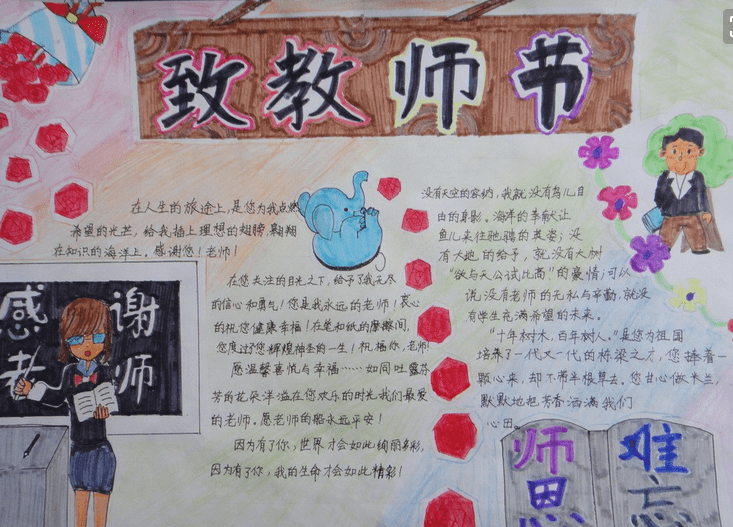 致教师节
在人生的旅途上,是您为我点燃
希望的光芒,给我插上理想的翅膀,翱翔
在知识的海洋上。感谢您!老师!
在您关注的目光之下,给予了我无尽
的信心和勇气!您是我永远的老师!衷心
的祝您健康幸福!在笔和纸的摩擦间,
您度过了您辉煌神圣的一生!祝福你,老师!
愿温馨喜悦与幸福……如同吐露芬
芳的花朵洋溢在您欢乐的时光我们最爱
的老师。愿老师的您永远平安!
因为有了你,世界才会如此绚丽多彩,
因为有了你,我的生命才会如此精彩!
没有天空的容纳,我就没有鸟儿自
由的身影。海洋的奉献让
鱼儿来往驰骋的英姿;没
有大地的给予,就没有大树
“欲与天公试比高”的豪情;可以
说没有老师的无私与辛勤,就没
有学生充满希望的未来。
“十年树木,百年树人。”是您为祖国
培养了一代又一代的栋梁之才,您捧着一
颗心来,却不带半根草去。您甘心做木兰,
默默地把芳香洒满我们
心田。
感谢
老师
师恩
难忘